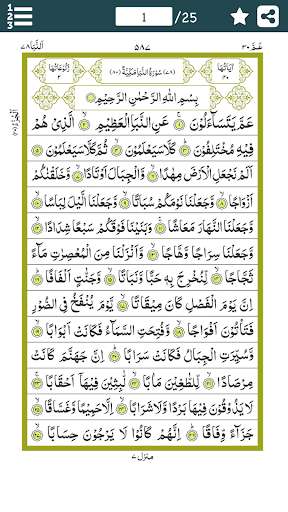 1 2 3
1 /25
النبا ٧٨
٥٨٧
عمّ ٣٠
اٰيَاتُهَا ٤٠
(٧٨) سُوْرَةُ النَّبَاِ مَكِّيَّةٌ (٨٠)
رُكُوْعَاتُهَا ٢
بِسْمِ اللّٰهِ الرَّحْمٰنِ الرَّحِيْمِ
عَمَّ يَتَسَآءَلُوْنَ ۚ ۝١ عَنِ النَّبَاِ الْعَظِيْمِ ۙ ۝٢ الَّذِيْ هُمْ
فِيْهِ مُخْتَلِفُوْنَ ؕ ۝٣ كَلَّا سَيَعْلَمُوْنَ ۙ ۝٤ ثُمَّ كَلَّا سَيَعْلَمُوْنَ ۝٥
اَلَمْ نَجْعَلِ الْاَرْضَ مِهٰدًا ۙ ۝٦ وَّالْجِبَالَ اَوْتَادًا ۪ۙ ۝٧ وَّخَلَقْنٰكُمْ
اَزْوَاجًا ۙ ۝٨ وَّجَعَلْنَا نَوْمَكُمْ سُبَاتًا ۙ ۝٩ وَّجَعَلْنَا الَّيْلَ لِبَاسًا ۙ ۝١٠
وَّجَعَلْنَا النَّهَارَ مَعَاشًا ۪ ۝١١ وَبَنَيْنَا فَوْقَكُمْ سَبْعًا شِدَادًا ۙ ۝١٢
وَّجَعَلْنَا سِرَاجًا وَّهَّاجًا ۪ۙ ۝١٣ وَّاَنْزَلْنَا مِنَ الْمُعْصِرٰتِ مَآءً
ثَجَّاجًا ۙ ۝١٤ لِّنُخْرِجَ بِهٖ حَبًّا وَّنَبَاتًا ۙ ۝١٥ وَّجَنّٰتٍ اَلْفَافًا ؕ ۝١٦
اِنَّ يَوْمَ الْفَصْلِ كَانَ مِيْقَاتًا ۙ ۝١٧ يَّوْمَ يُنْفَخُ فِي الصُّوْرِ
فَتَاْتُوْنَ اَفْوَاجًا ۙ ۝١٨ وَّفُتِحَتِ السَّمَآءُ فَكَانَتْ اَبْوَابًا ۙ ۝١٩
وَّسُيِّرَتِ الْجِبَالُ فَكَانَتْ سَرَابًا ؕ ۝٢٠ اِنَّ جَهَنَّمَ كَانَتْ
مِرْصَادًا ۪ۙ ۝٢١ لِّلطّٰغِيْنَ مَاٰبًا ۙ ۝٢٢ لّٰبِثِيْنَ فِيْهَاۤ اَحْقَابًا ۚ ۝٢٣
لَا يَذُوْقُوْنَ فِيْهَا بَرْدًا وَّلَا شَرَابًا ۙ ۝٢٤ اِلَّا حَمِيْمًا وَّغَسَّاقًا ۙ ۝٢٥
جَزَآءً وِّفَاقًا ؕ ۝٢٦ اِنَّهُمْ كَانُوْا لَا يَرْجُوْنَ حِسَابًا ۙ ۝٢٧
منزل ٧